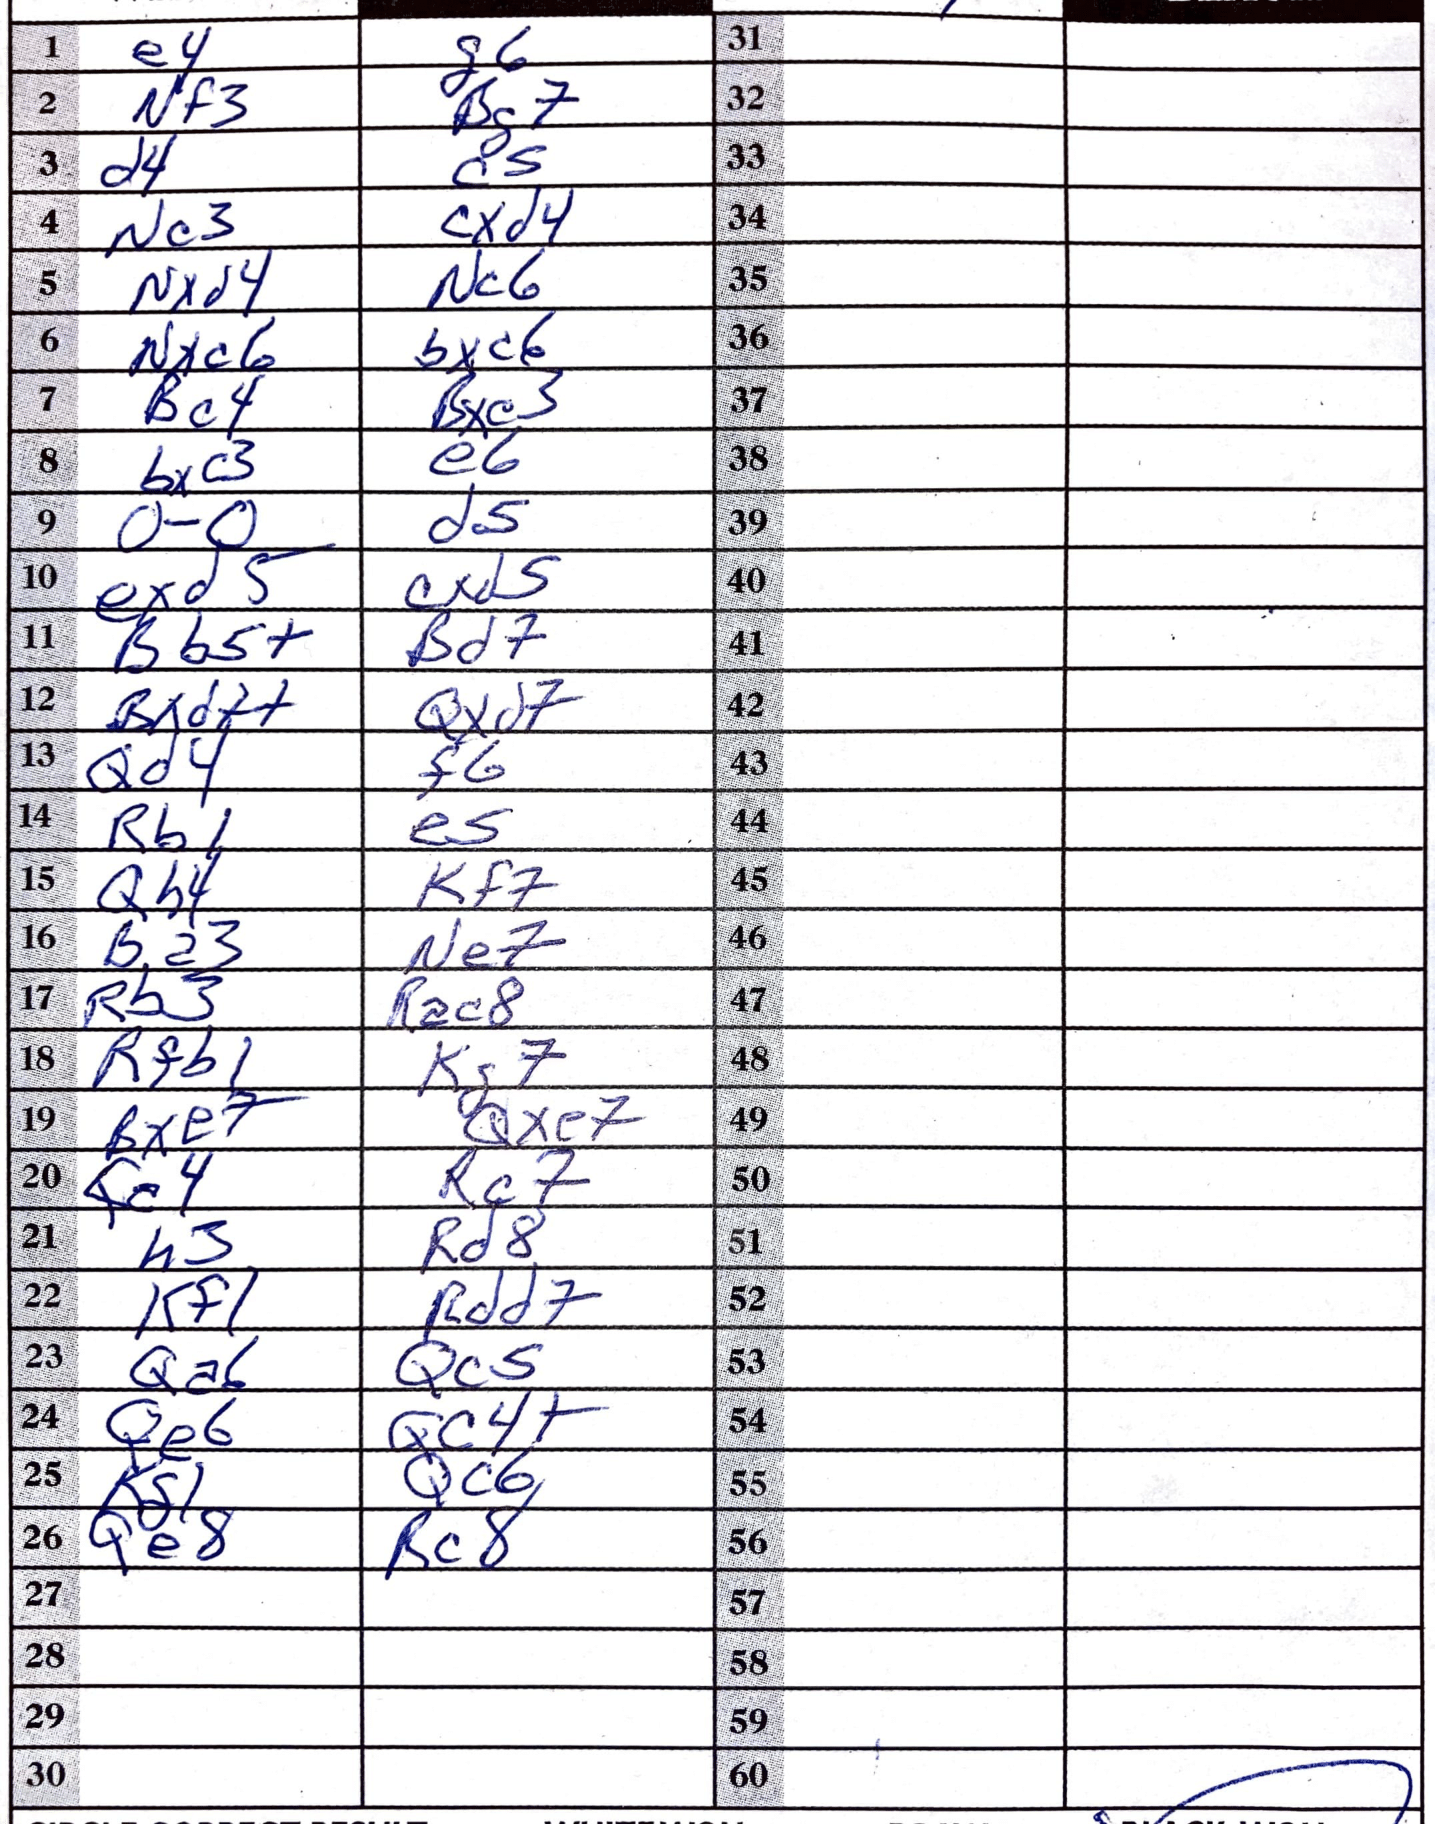 1 e4 g6 31
2 Nf3 Bg7 32
3 d4 c5 33
4 Nc3 cxd4 34
5 Nxd4 Nc6 35
6 Nxc6 bxc6 36
7 Bc4 Bxc3 37
8 bxc3 e6 38
9 O-O d5 39
10 exd5 cxd5 40
11 Bb5+ Bd7 41
12 Bxd7+ Qxd7 42
13 Qd4 f6 43
14 Rb1 e5 44
15 Qb4 Kf7 45
16 Ba3 Ne7 46
17 Rb3 Rac8 47
18 Rfb1 Kg7 48
19 Bxe7 Qxe7 49
20 Qa4 Rc7 50
21 h3 Rd8 51
22 Kf1 Rdd7 52
23 Qa6 Qc5 53
24 Qe6 Qc4+ 54
25 Kg1 Qc6 55
26 Qe8 Rc8 56
27 57
28 58
29 59
30 60
CIRCLE CORRECT RESULT WHITE WON DRAW BLACK WON